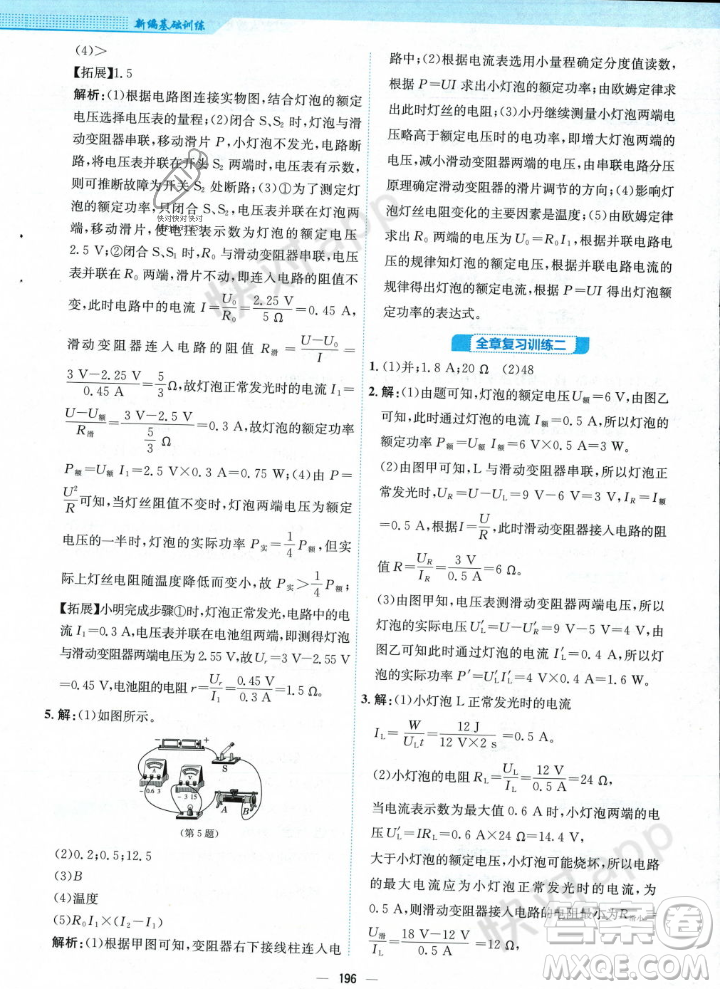 新编基础训练
(4)>
【拓展】1.5
解析:(1)根据电路图连接实物图,结合灯泡的额定
电压选择电压表的量程;(2)闭合 S、S₂ 时,灯泡与滑
动变阻器串联,移动滑片 P,小灯泡不发光,电路断
路,将电压表并联在开关 S₂ 两端时,电压表有示数,
则可推断故障为开关 S₂ 处断路;(3)①为了测出灯
泡的额定功率,只闭合 S、S₂,电压表并联在灯泡两
端,移动滑片,使电压表示数为灯泡的额定电压
2.5 V;②闭合 S、S₁ 时,R₀ 与滑动变阻器串联,电
压表并联在 R₀ 两端,滑片不动,即连入电路的阻值不
变,此时电路中的电流 I=U₀/R₀=2.25 V/5 Ω=0.45 A,
滑动变阻器连入电路的阻值 R滑=(U−U₀)/I=
(3 V−2.25 V)/0.45 A=5/3 Ω;故灯泡正常发光时的电流 I₁=
(U−U额)/R滑=(3 V−2.5 V)/(5/3 Ω)=0.3 A,故灯泡的额定功率
P额=U额 I₁=2.5 V×0.3 A=0.75 W;(4)由 P=
U²/R可知,当灯丝阻值不变时,灯泡两端电压为额定
电压的一半时,灯泡的实际功率 P实=1/4 P额,但实
际上灯丝电阻随温度降低而变小,故 P实>1/4 P额。
【拓展】小明完成步骤①时,灯泡正常发光,电路中的电
流 I₁=0.3 A,电压表并联在电池组两端,即测出灯泡
与滑动变阻器两端电压为 2.55 V,故 Uᵣ=3 V−2.55 V
=0.45 V,电池组的阻值 r=Uᵣ/I₁=0.45 V/0.3 A=1.5 Ω。
5. 解:(1)如图所示。
S
−0.6 3
−3 15
A
B
(第 5 题)
(2)0.2;0.5;12.5
(3)B
(4)温度
(5)R₀I₁×(I₂−I₁)
解析:(1)根据甲图可知,变阻器右下接线柱连入电
路中;(2)根据电流表选用小量程确定分度值读数,
根据 P=UI 求出小灯泡的额定功率;由欧姆定律求
出此时灯丝的电阻;(3)小丹继续测量小灯泡两端电
压略高于额定电压时的电功率,即增大灯泡两端电
压,减小滑动变阻器两端的电压,由串联电路分压
原理确定滑动变阻器的滑片调节的方向;(4)影响灯
泡灯丝电阻变化的主要因素是温度;(5)由欧姆定律
求出 R₀ 两端的电压为 U₀=R₀I₁,根据并联电路电压
的规律知灯泡的额定电压,根据并联电路电流的
规律得出额定电流,根据 P=UI 得出得出灯泡额
定功率的表达式。
全章复习训练二
1. (1)并;1.8 A;20 Ω (2)48
2. 解:(1)由题可知,灯泡的额定电压U额=6 V,由图乙
可知,此时通过灯泡的电流 I额=0.5 A,所以灯泡的
额定功率 P额=U额I额=6 V×0.5 A=3 W
(2)由图甲可知,L与滑动变阻器串联,所以灯泡正
常发光时,U_R=U−U_L=9 V−6 V=3 V,I_R=I额
=0.5 A,根据I=U/R,此时滑动变阻器接入电路的阻
值 R=U_R/I_R=3 V/0.5 A=6 Ω
(3)由图甲可知,电压表测滑动变阻器两端电压,所以
灯泡的实际电压 U′_L=U−U′_R=9 V−5 V=4 V,由
图乙可知此时通过灯泡的电流 I′_L=0.4 A,所以
灯泡的实际功率 P′=U′_LI′_L=4 V×0.4 A=1.6 W
3. 解:(1)小灯泡 L 正常发光时的电流
I_L=W/(U_Lt)=12 J/(12 V×2 s)=0.5 A。
(2)小灯泡的电阻 R_L=U_L/I_L=12 V/0.5 A=24 Ω,
当电流表示数为最大值 0.6 A 时,小灯泡两端的电
压 U′_L=IR_L=0.6 A×24 Ω=14.4 V,
大于小灯泡的额定电压,小灯泡可能烧坏,所以电路
的最大电流应为小灯泡正常发光时的电流
0.5 A,则滑动变阻器接入电路的电阻最小为 R滑小=
(18 V−12 V)/0.5 A=12 Ω
196
快对快对快对
快对app
快对app
答案圈